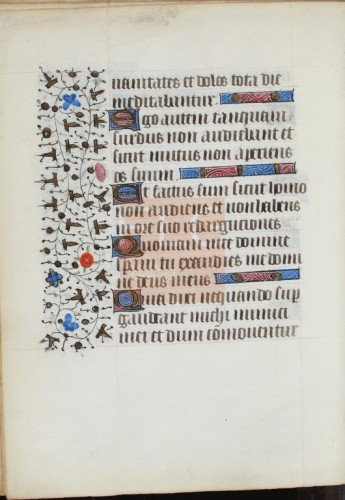 vanitates et dolos tota die
meditabantur.
Ego autem tanquam
surdus non audiebam et
sicut mutus non aperiens
os suum
Et factus sum sicut homo
non audiens et non habens
in ore suo redargutiones
Quoniam in te domine
speravi tu exaudies me domi
ne deus meus
Quia dixi nequando sup
gaudeant michi inimici
mei et dum comoventur